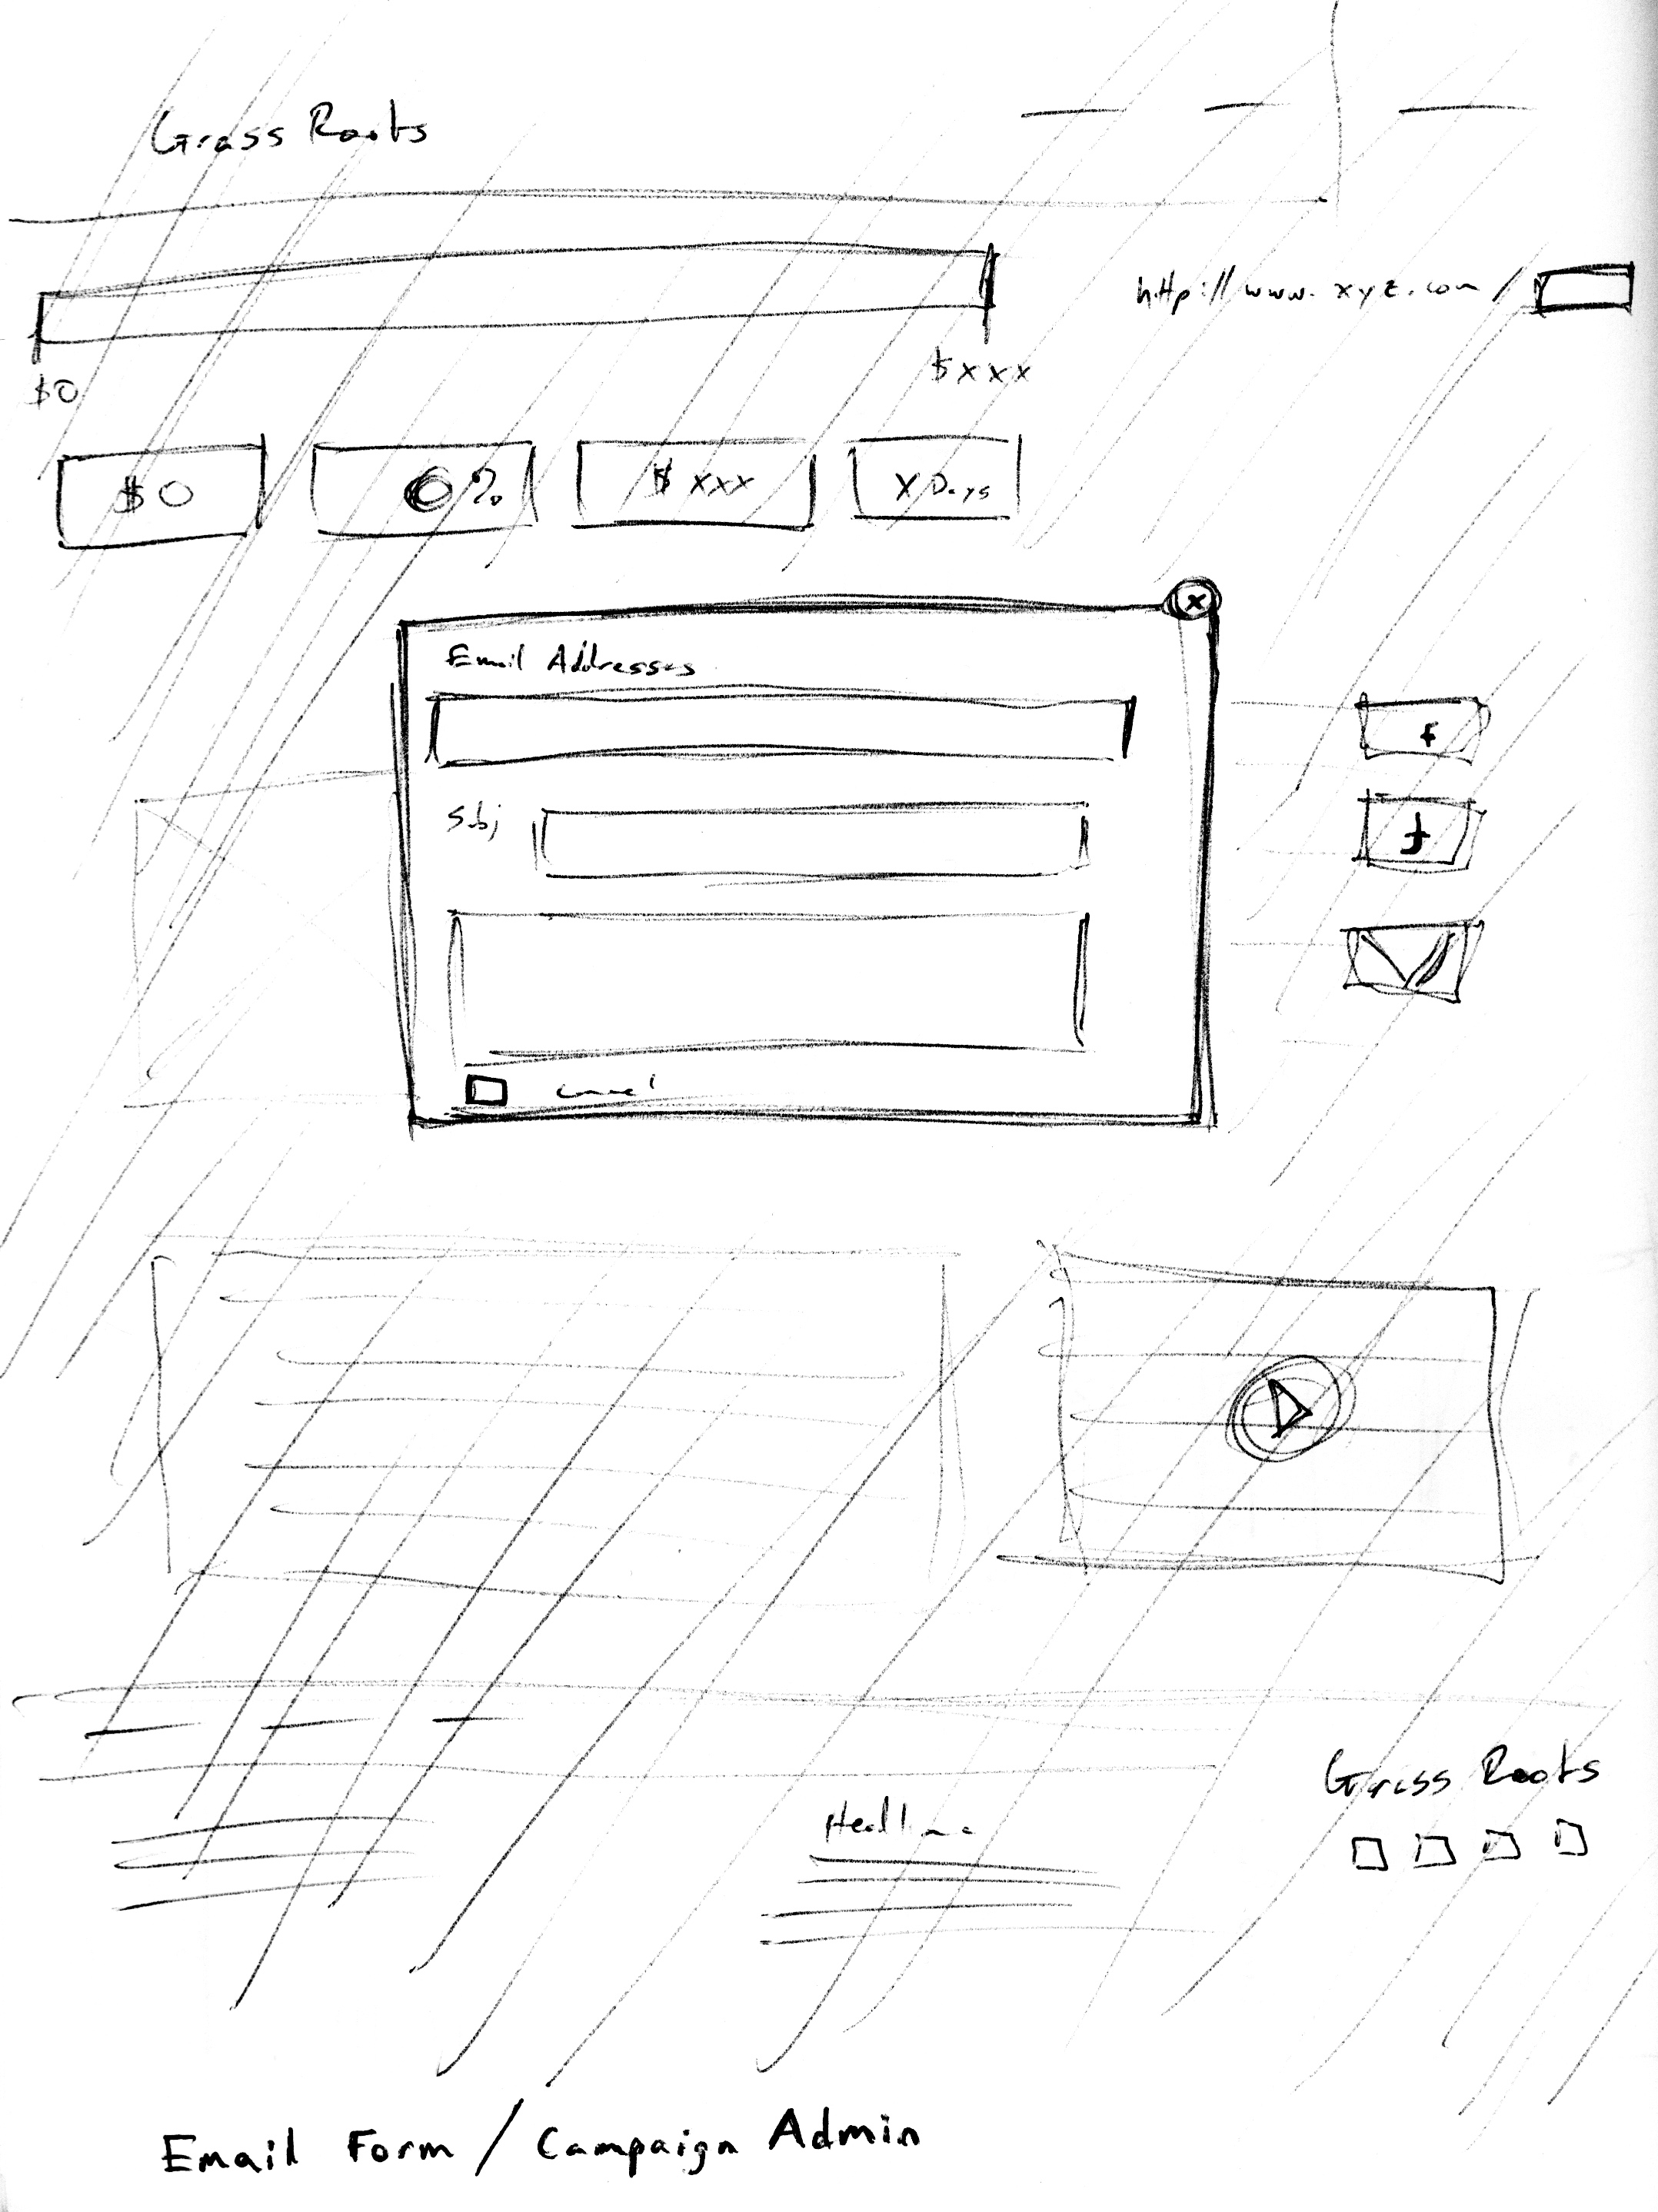 Grass Roots
http://www.xyz.com/
$0
$xxx
$0
0%
$xxx
X Days
x
Email Addresses
f
Subj
t
cancel
Grass Roots
Headline
Email Form / Campaign Admin